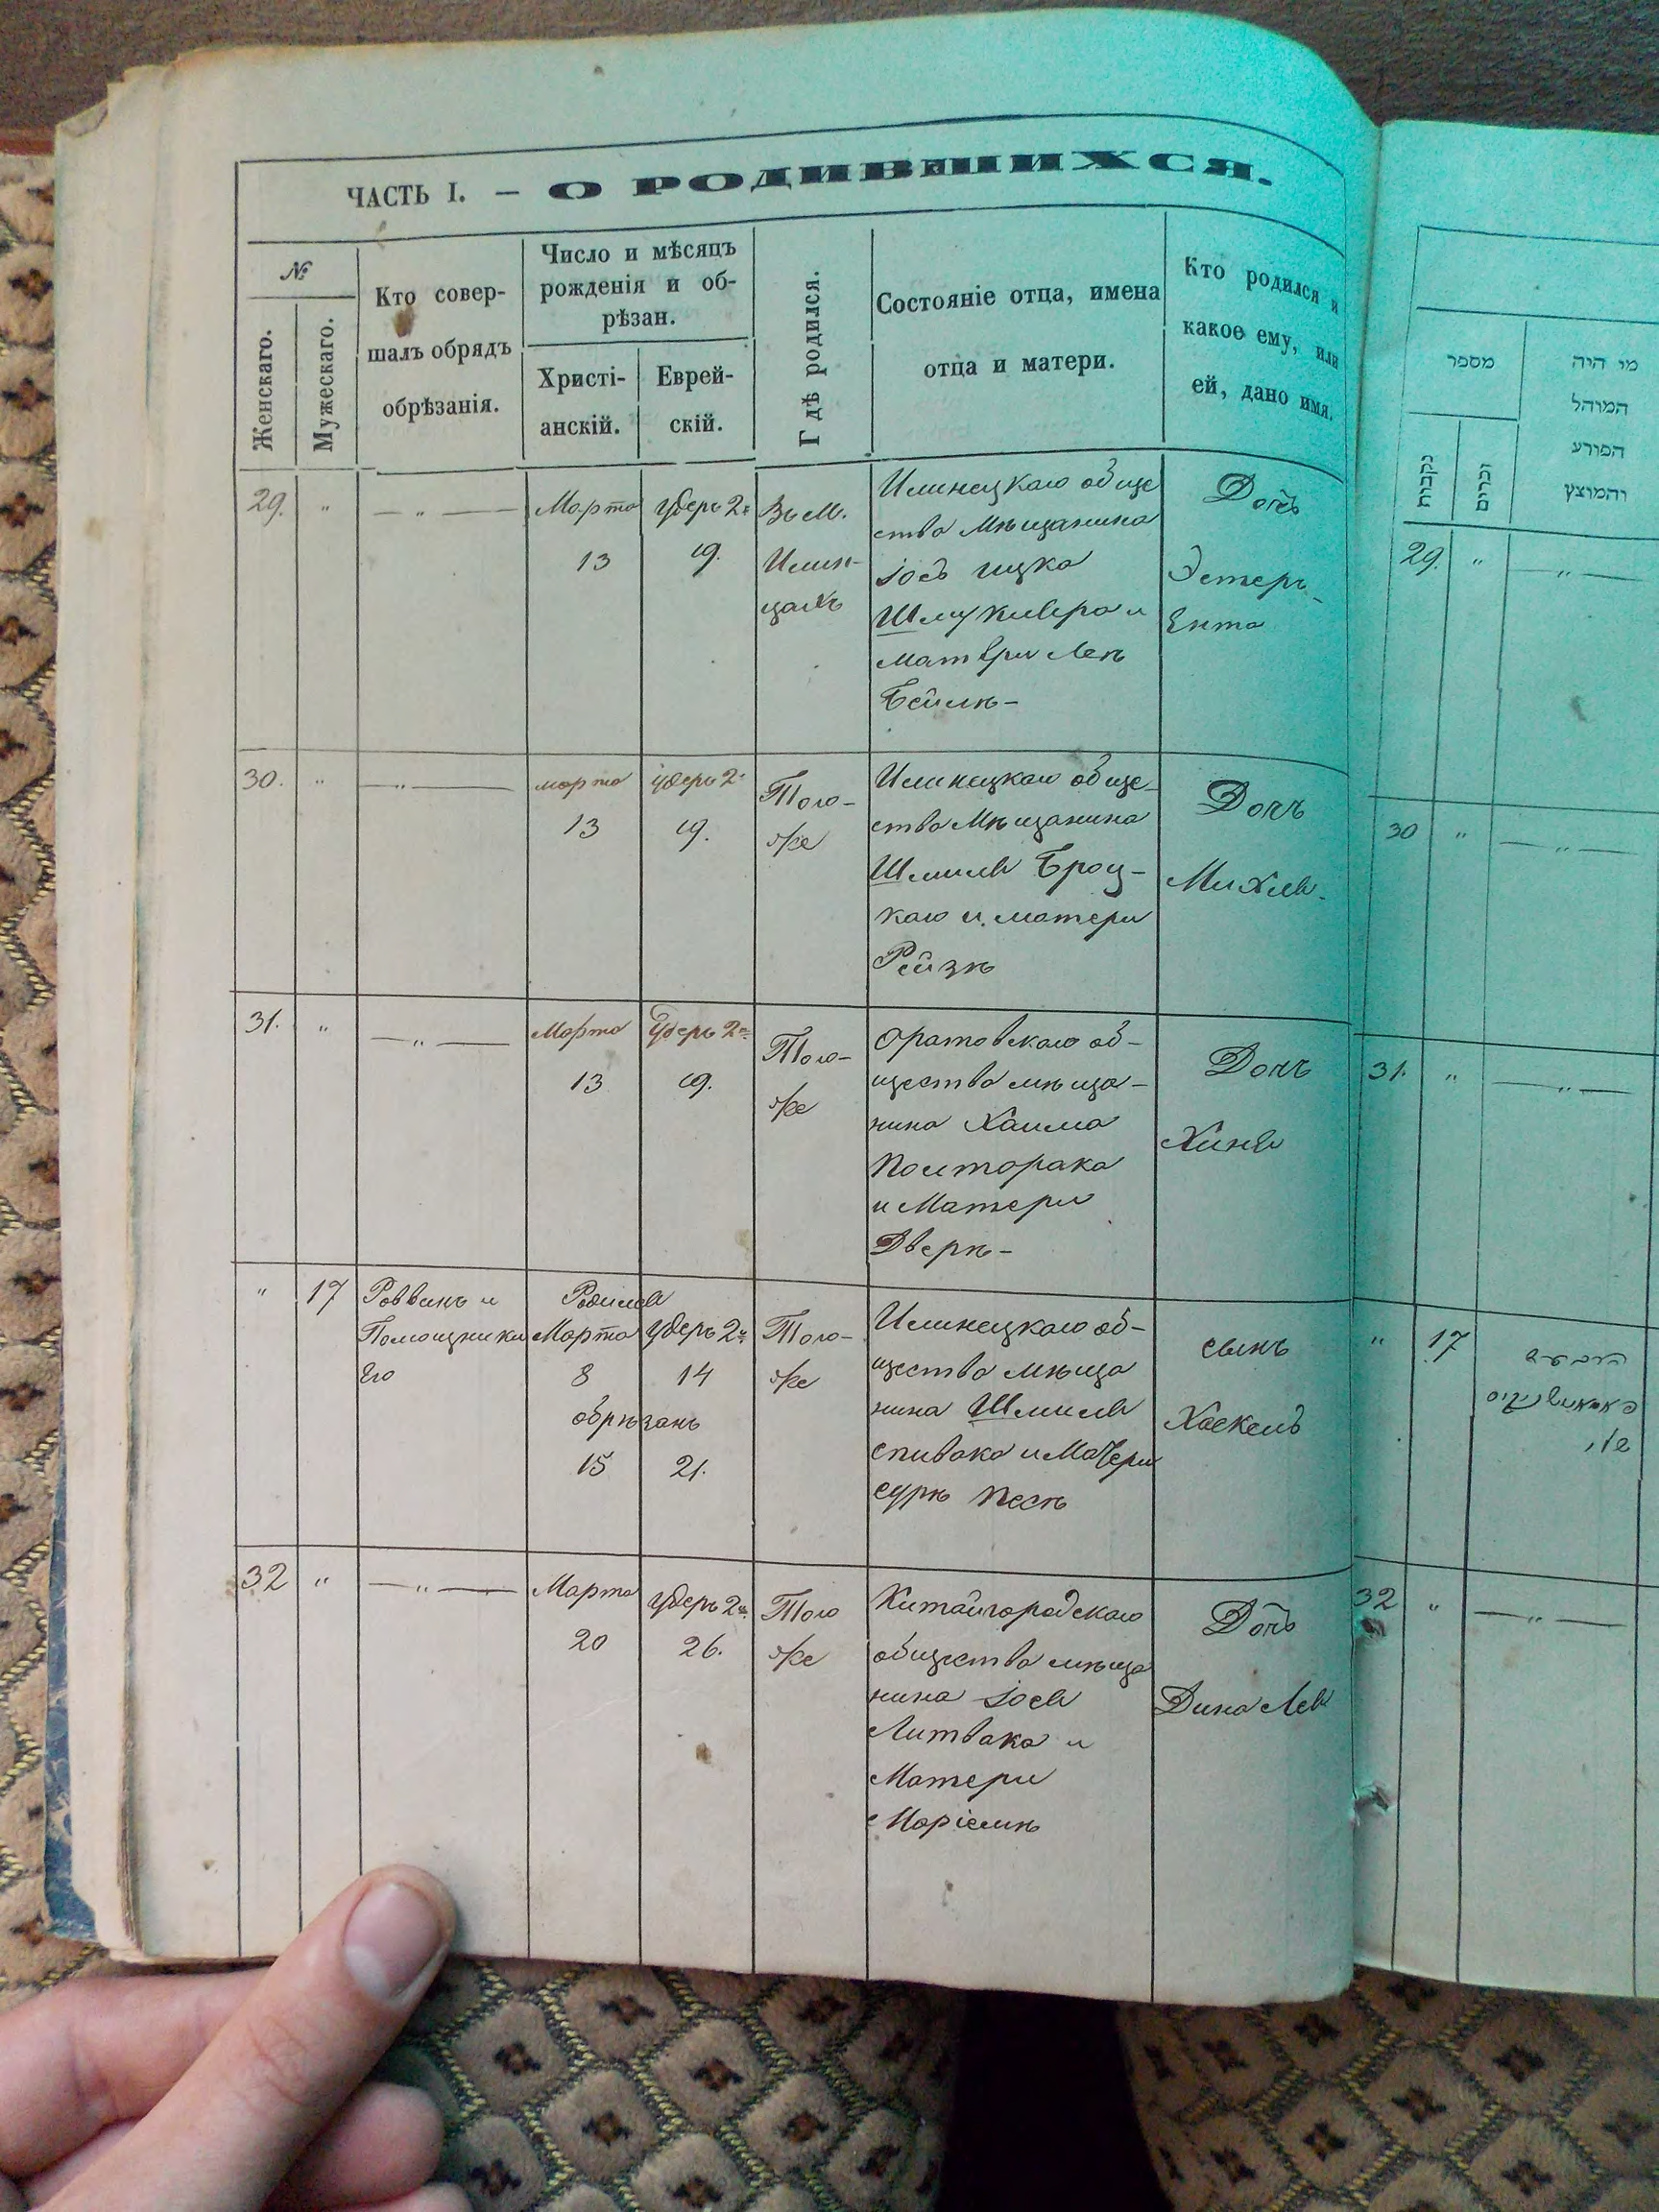 ЧАСТЬ I. — О РОДИВШИХСЯ.
№
Женскаго.
Мужескаго.
Кто совер-
шалъ обрядъ
обрѣзанія.
Число и мѣсяцъ
рожденія и об-
рѣзан.
Христі-
анскій.
Еврей-
скій.
Гдѣ родился.
Состояніе отца, имена
отца и матери.
Кто родился и
какое ему, или
ей, дано имя.
29.
"
— " —
Марта
13
Адеръ 2й
19.
Въ М.
Илин-
цахъ
Илинецкаго обще
ства Мѣщанина
Іось ицка
и
матери Леѣ
Бейлѣ-
Дочь
Эстеръ-
Ента
30.
"
— " —
марта
13
Адеръ 2й
19.
Того-
же
Илинецкаго обще-
ства Мѣщанина
Шмиля Броц-
каго и матери
Рейзѣ
Дочь
Михля.
31.
"
— " —
Марта
13
Адеръ 2й
19.
Того-
же
Оратовскаго об-
щества мѣща-
нина Хаима
Полторака
и Матери
Дверѣ-
Дочь
Хиня
"
17
Раввинъ и
Помощники
Его
Родился
Марта
8
обрѣзанъ
15
Адеръ 2й
14
21.
Того-
же
Илинецкаго об-
щества мѣща
нина Шмиля
Спивака и Матери
Сурѣ Песѣ
сынъ
Хаскель
32
"
— " —
Марта
20
Адеръ 2й
26.
Того
же
Китайгородскаго
общества мѣща
нина Іося
Литвака и
Матери
Маріемѣ
Дочь
Дина Лея
מספר
נקבות
זכרים
מי היה
המוהל
הפורע
והמוצץ
29.
"
— " —
30
"
— " —
31.
"
— " —
"
17
32
"
— " —